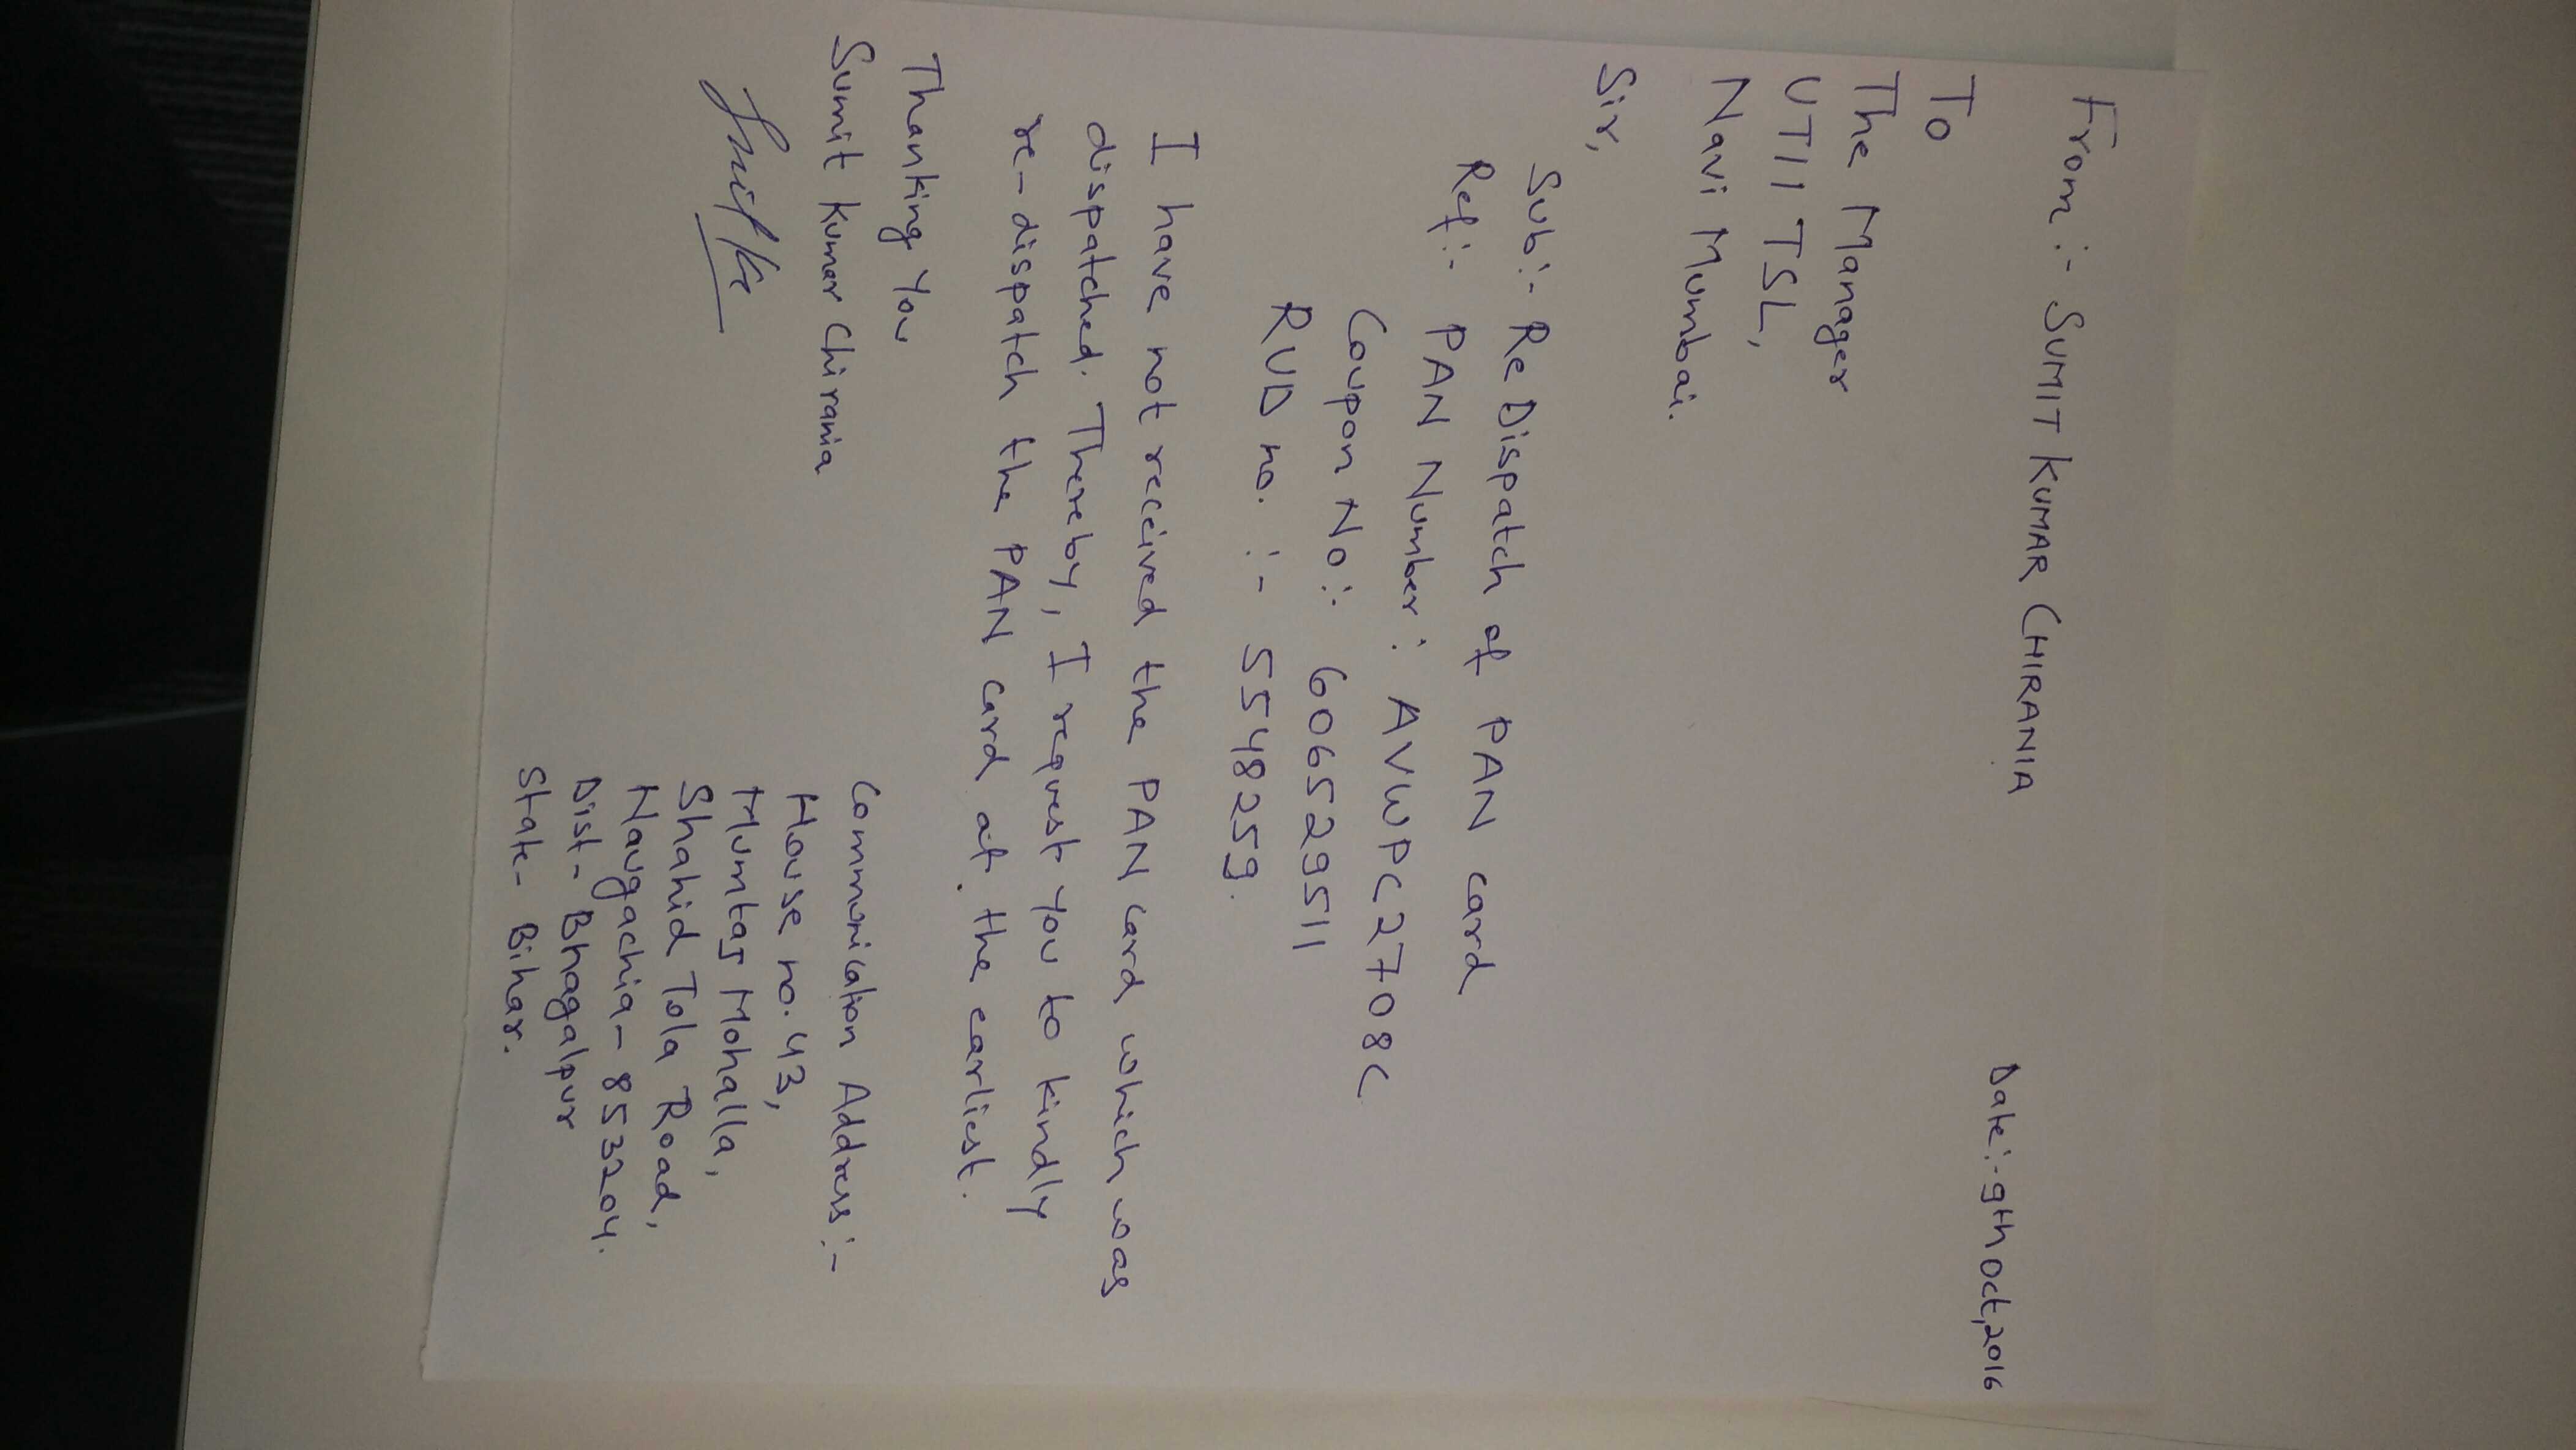 From :- SUMIT KUMAR CHIRANIA
Date :- 9th Oct, 2016
To
The Manager
UTII TSL,
Navi Mumbai.
Sir,
Sub :- Re Dispatch of PAN card
Ref :- PAN Number : AVWPC2708C
Coupon No :- 606529511
RUD no. :- 5548259.
I have not received the PAN card which was
dispatched. Thereby, I request you to kindly
re-dispatch the PAN card at the earliest.
Thanking You
Sumit Kumar Chirania
Communication Address :-
House no. 43,
Mumtas Mohalla,
Shahid Tola Road,
Naugachia - 853204.
Dist - Bhagalpur
State - Bihar.